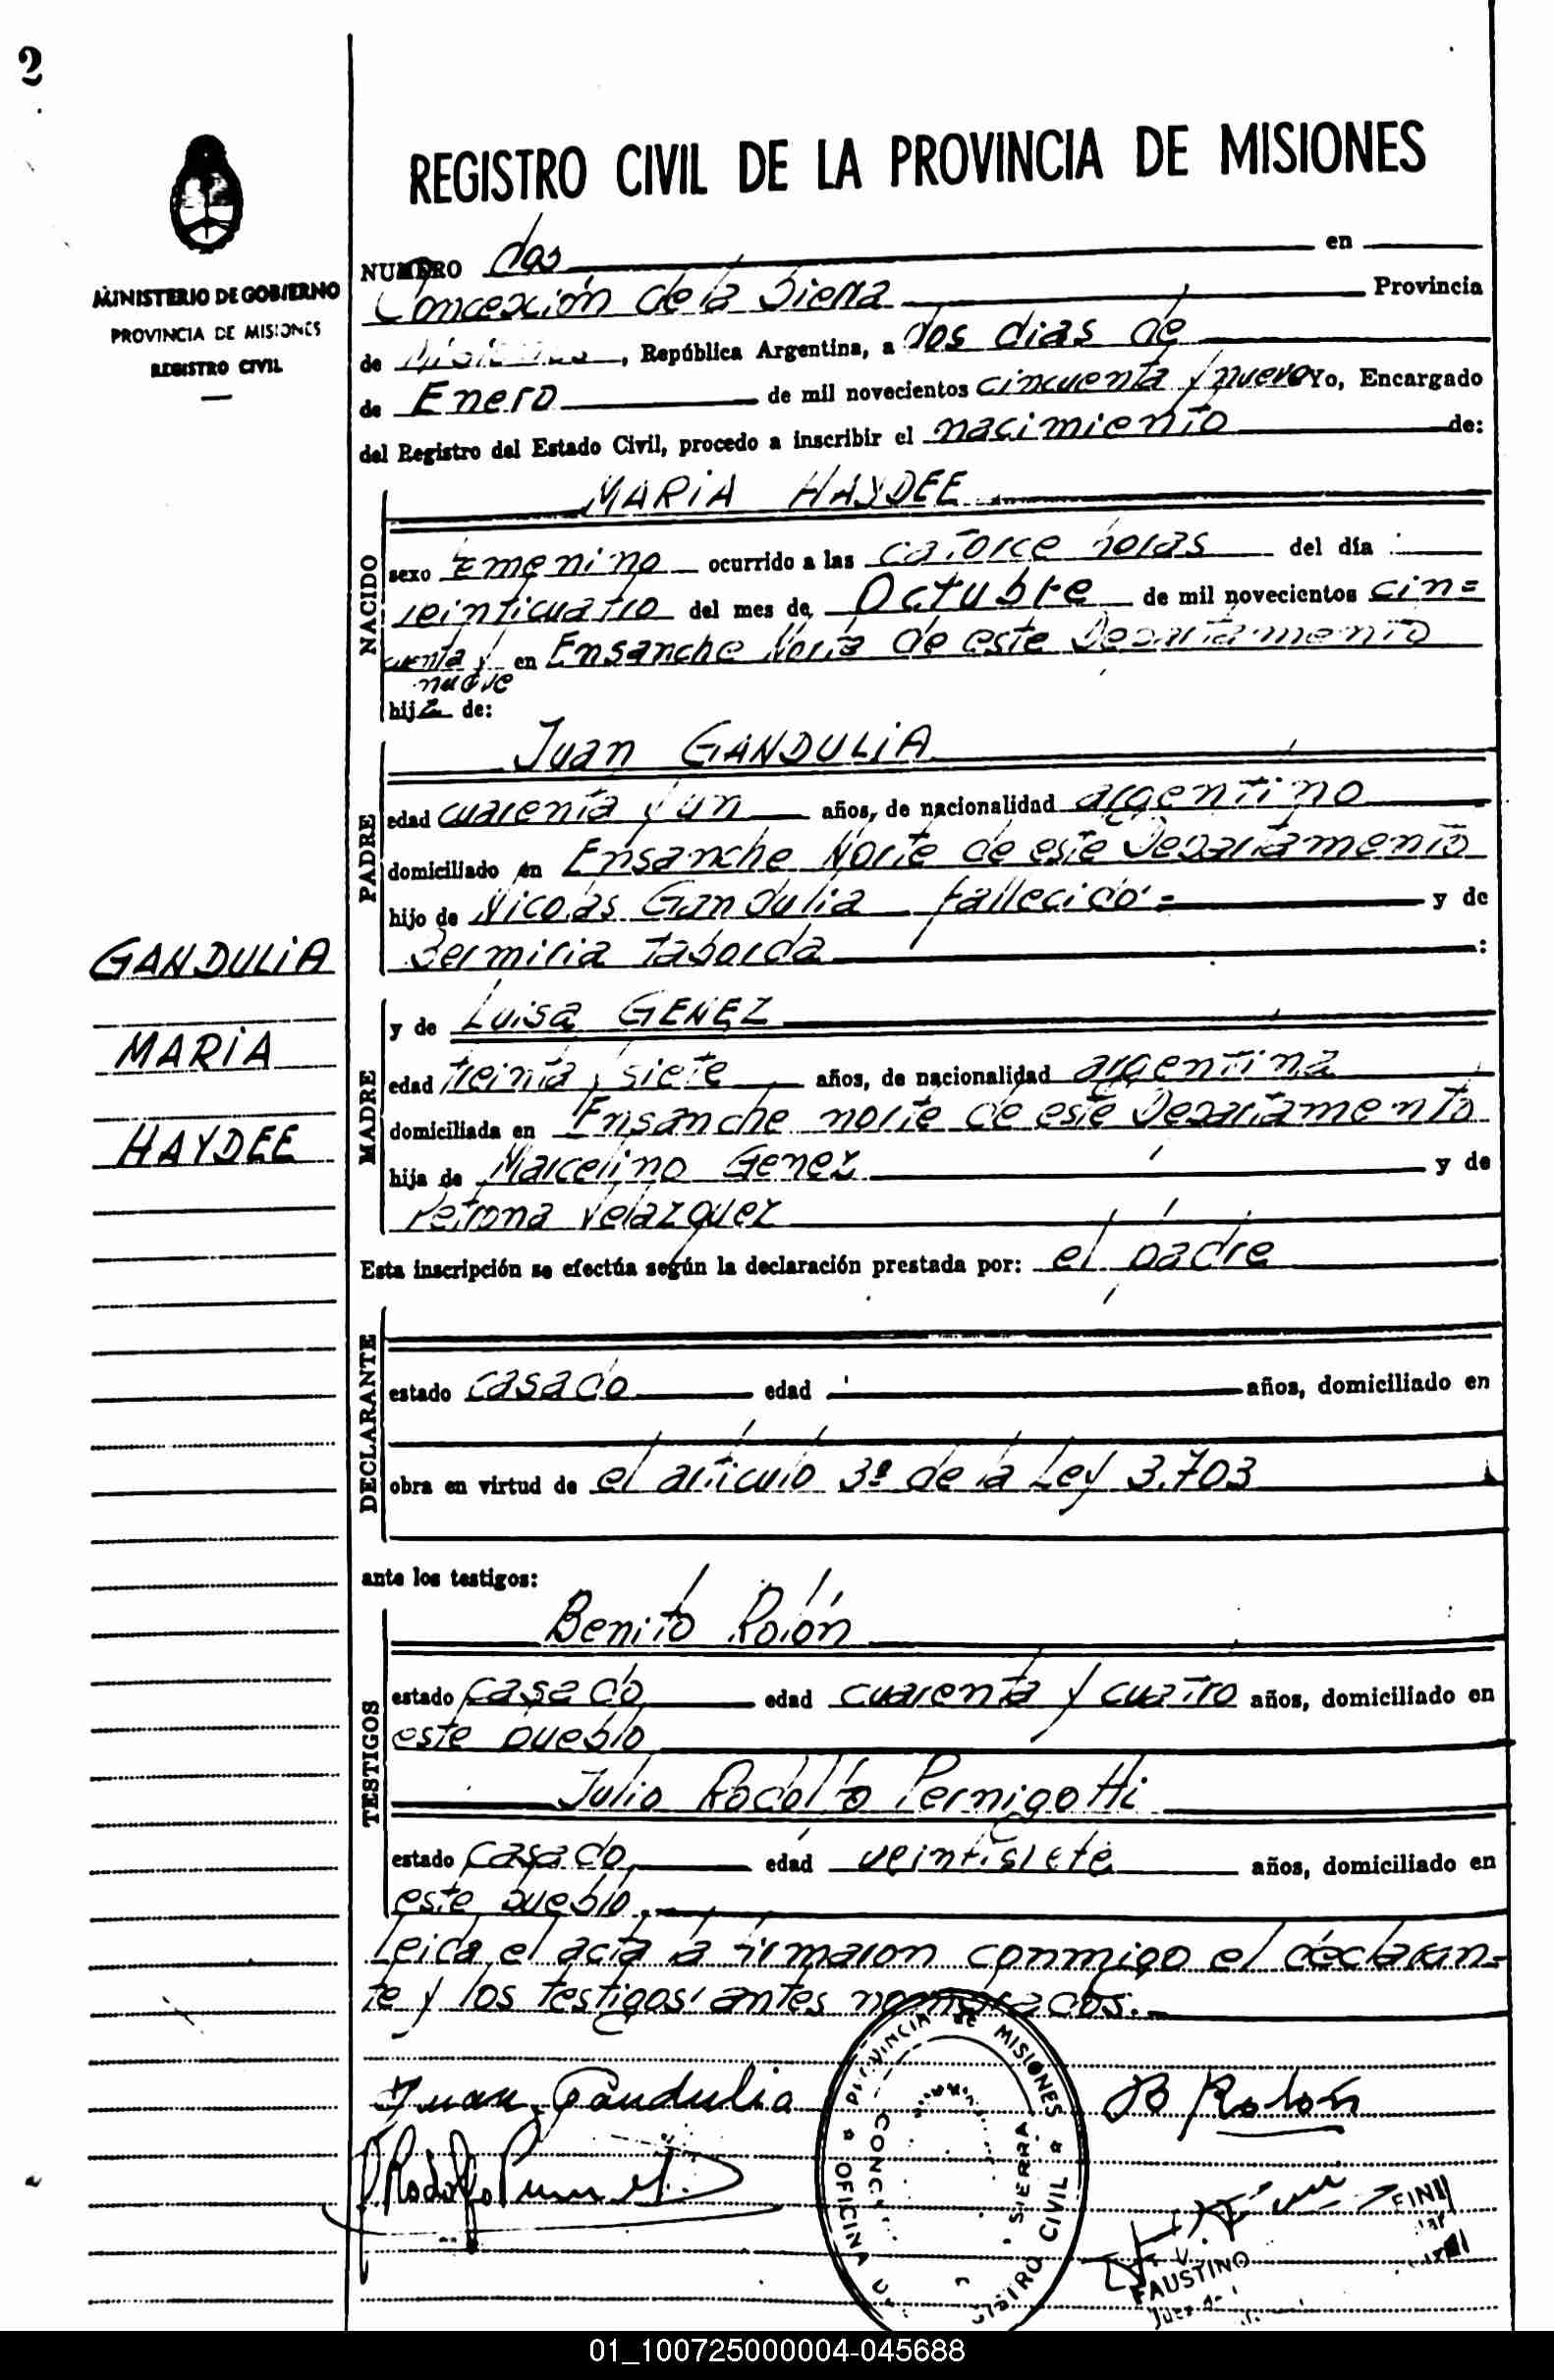 2
MINISTERIO DE GOBIERNO
PROVINCIA DE MISIONES
REGISTRO CIVIL
REGISTRO CIVIL DE LA PROVINCIA DE MISIONES
NUMERO dos en
Concepción de la Sierra Provincia
de Misiones, República Argentina, a dos dias de
de Enero de mil novecientos cincuenta y nueve Yo, Encargado
del Registro del Estado Civil, procedo a inscribir el nacimiento de:
NACIDO
MARIA HAYDEE
sexo Femenino ocurrido a las catorce horas del día
veinticuatro del mes de Octubre de mil novecientos cin=
cuenta y en Ensanche Norte de este Departamento
nueve
hija de:
PADRE
Juan GANDULIA
edad cuarenta y un años, de nacionalidad argentino
domiciliado en Ensanche Norte de este Departamento
hijo de Nicolás Gandulia fallecido= y de
Taborda:
MADRE
y de Luisa GENEZ
edad treinta y siete años, de nacionalidad argentina
domiciliada en Ensanche norte de este Departamento
hija de Marcelino Genez y de
Petrona Velazquez
GANDULIA
MARIA
HAYDEE
Esta inscripción se efectúa según la declaración prestada por: el padre
DECLARANTE
estado casado edad años, domiciliado en
obra en virtud de el artículo 3º de la Ley 3.703
ante los testigos:
TESTIGOS
Benito Rolón
estado casado edad cuarenta y cuatro años, domiciliado en
este pueblo
Julio Rodolfo Pernigotti
estado casado edad veintisiete años, domiciliado en
este pueblo.
Leida el acta la firmaron conmigo el declaran-
te y los testigos antes nombrados.
Juan Gandulia
B Rolón
Rodolfo
PROVINCIA DE MISIONES
OFICINA
REGISTRO CIVIL
CONC. SIERRA
FAUSTINO
01_100725000004-045688